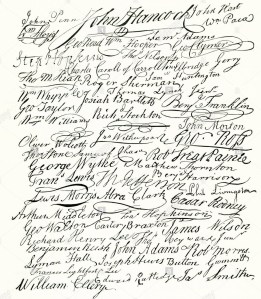 John Penn John Hancock John Hart
Wm Hooper Saml Adams Wm Paca
Geo Read Wm Hooper Geo Clymer
Step Hopkins Thos Nelson jr
Charles Carroll of Carrollton Elbridge Gerry
Tho M:Kean Roger Sherman Saml Huntington
Wm Whipple Thomas Lynch Junr
Geo Taylor Josiah Bartlett Benj Franklin
Wm Williams Richd Stockton
John Morton
Oliver Wolcott Jno Witherspoon Geo Ross
Thos Stone Samuel Chase Robt Treat Paine
George Wythe Matthew Thornton
Frans Lewis Benj Harrison
Phil Livingston
Lewis Morris Abra Clark Cæsar Rodney
Arthur Middleton Fras Hopkinson
Geo Walton Carter Braxton James Wilson
Richard Henry Lee Thos Heyward Junr
Benjamin Rush John Adams Robt Morris
Lyman Hall Joseph Hewes Button Gwinnett
Francis Lightfoot Lee
William Ellery Edward Rutledge Jas Smith